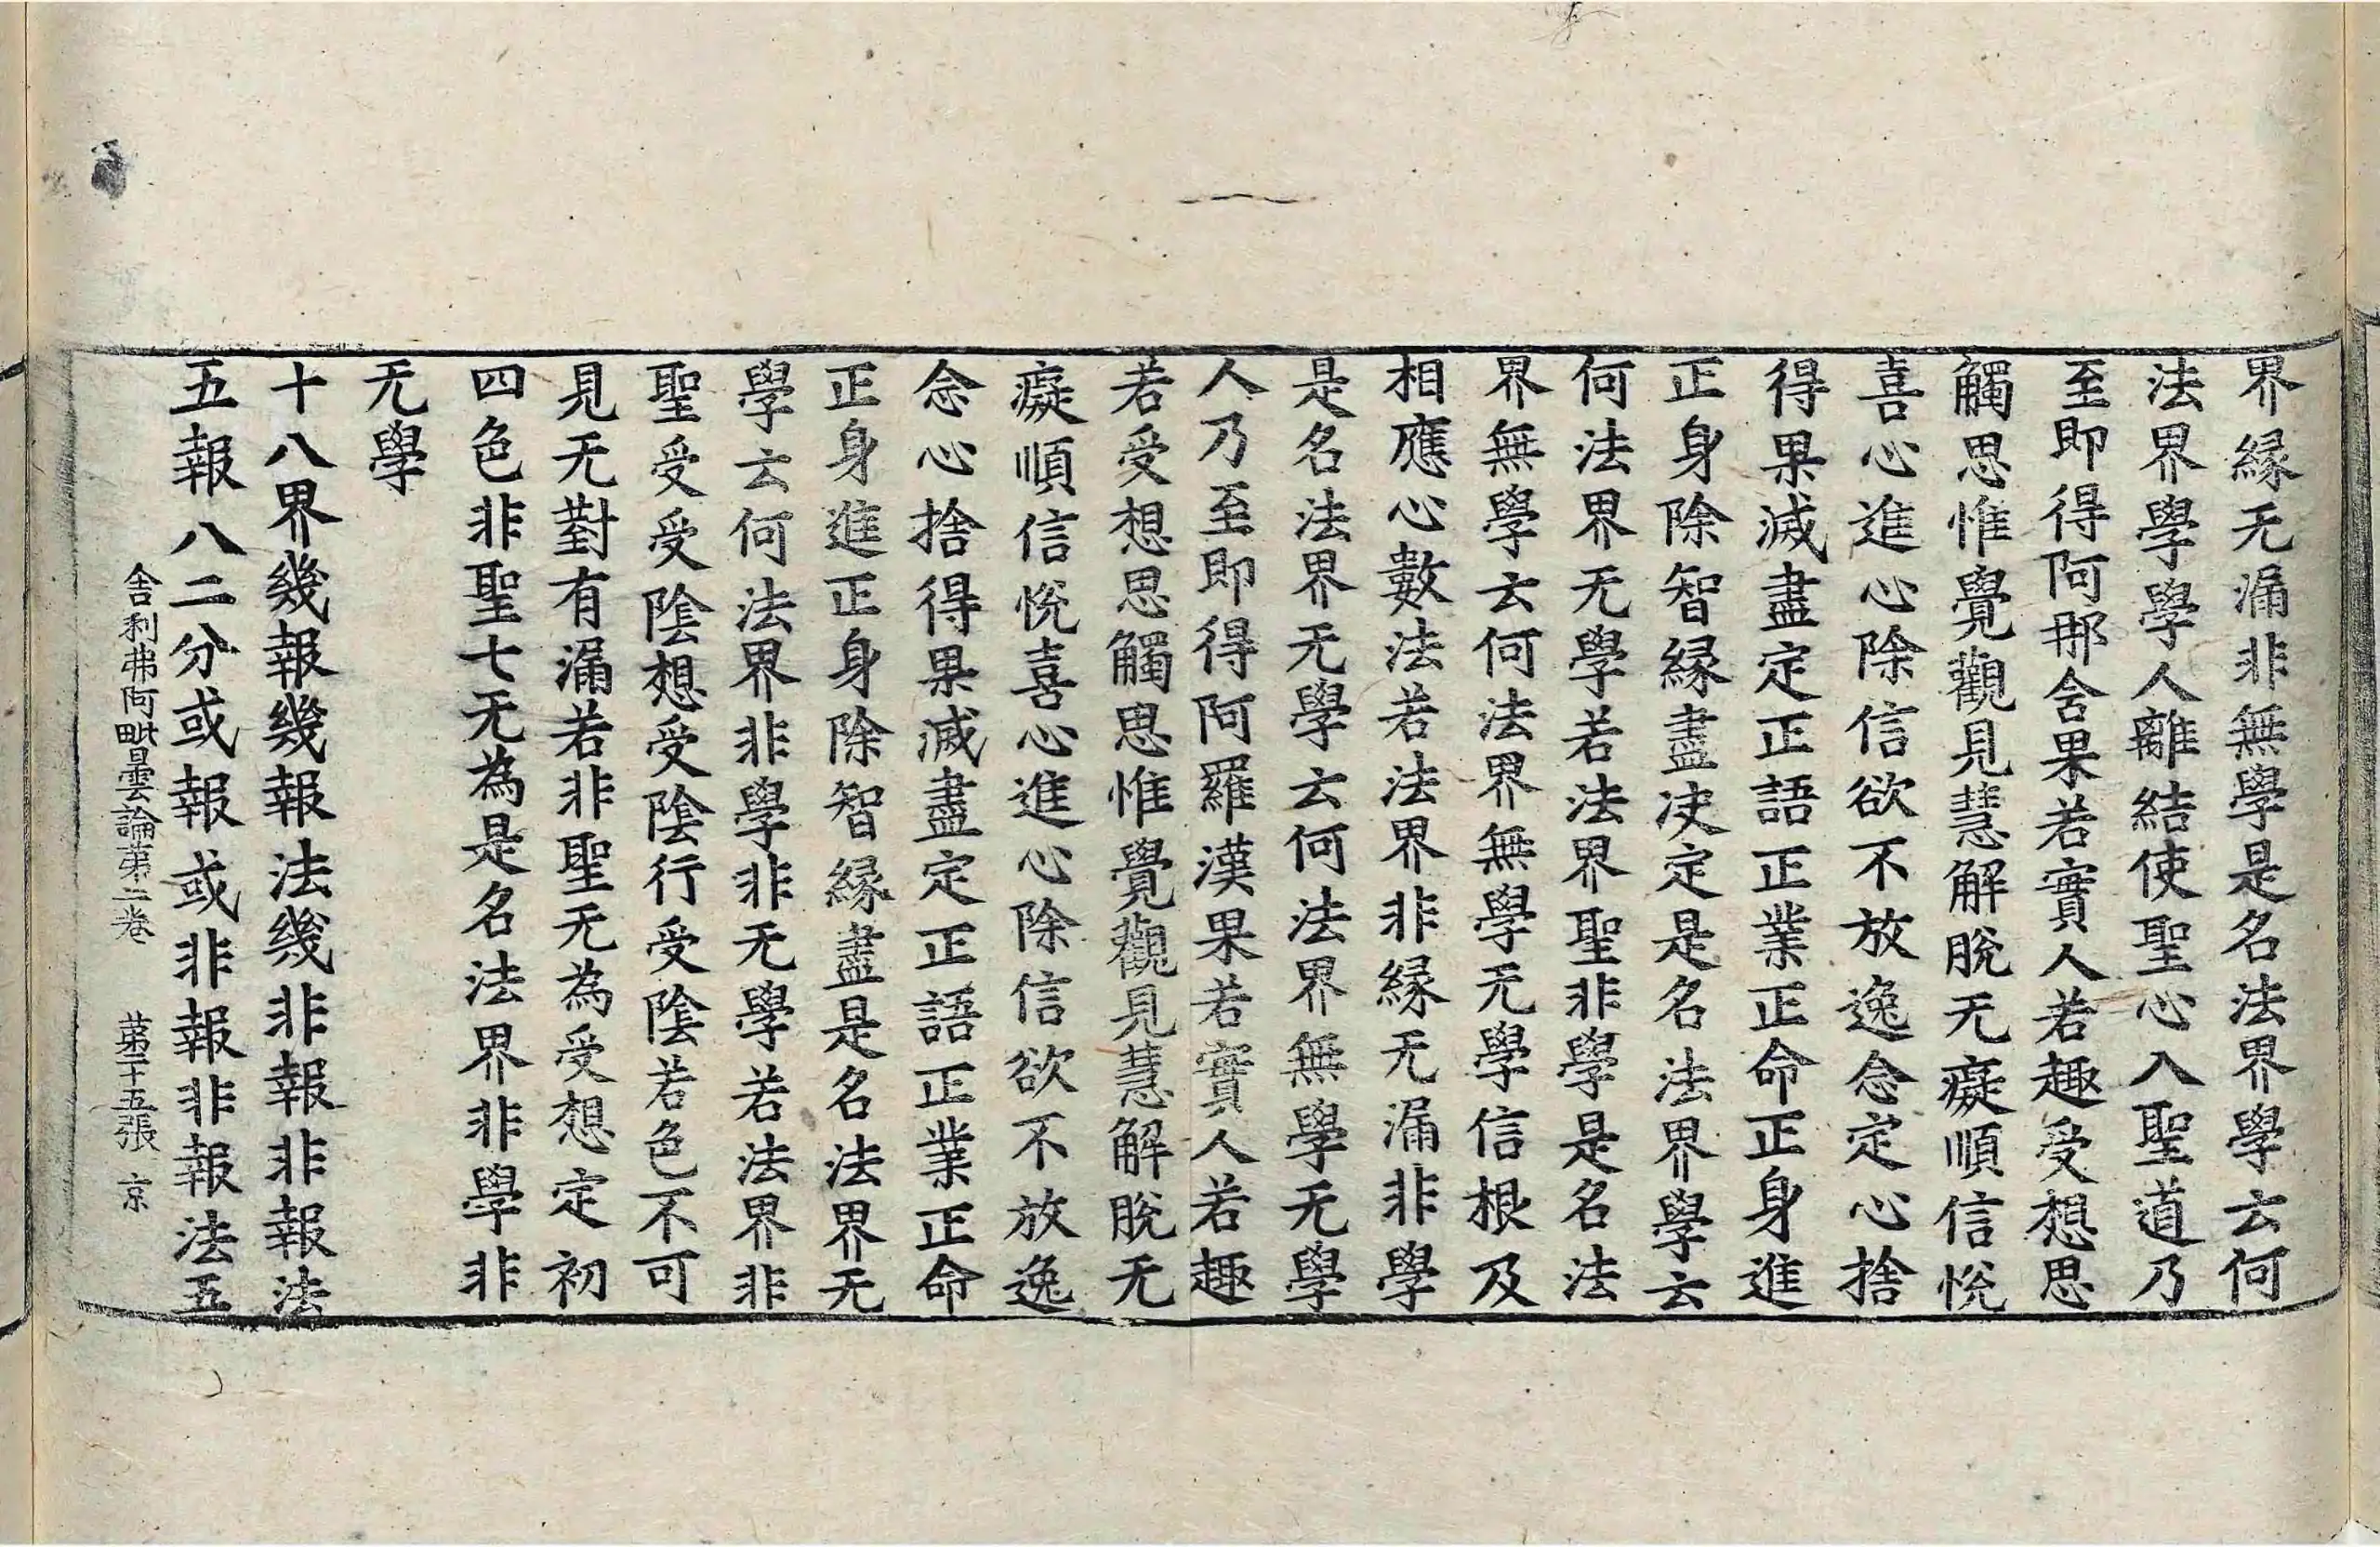 界緣无漏非無學是名法界學云何
法界學學人離結使聖心入聖道乃
至即得阿那含果若實人若趣受想思
觸思惟覺觀見慧解脫无癡順信悅
喜心進心除信欲不放逸念定心捨
得果滅盡定正語正業正命正身進
正身除智緣盡决定是名法界學云
何法界无學若法界聖非學是名法
界無學云何法界無學无學信根及
相應心數法若法界非緣无漏非學
是名法界无學云何法界無學无學
人乃至即得阿羅漢果若實人若趣
若受想思觸思惟覺觀見慧解脫无
癡順信悅喜心進心除信欲不放逸
念心捨得果滅盡定正語正業正命
正身進正身除智緣盡是名法界无
學云何法界非學非无學若法界非
聖受受陰想受陰行受陰若色不可
見无對有漏若非聖无為受想定初
四色非聖七无為是名法界非學非
无學
十八界幾報幾報法幾非報非報法
五報八二分或報或非報非報法五
舍利弗阿毗曇論第二卷 第二十五張 京